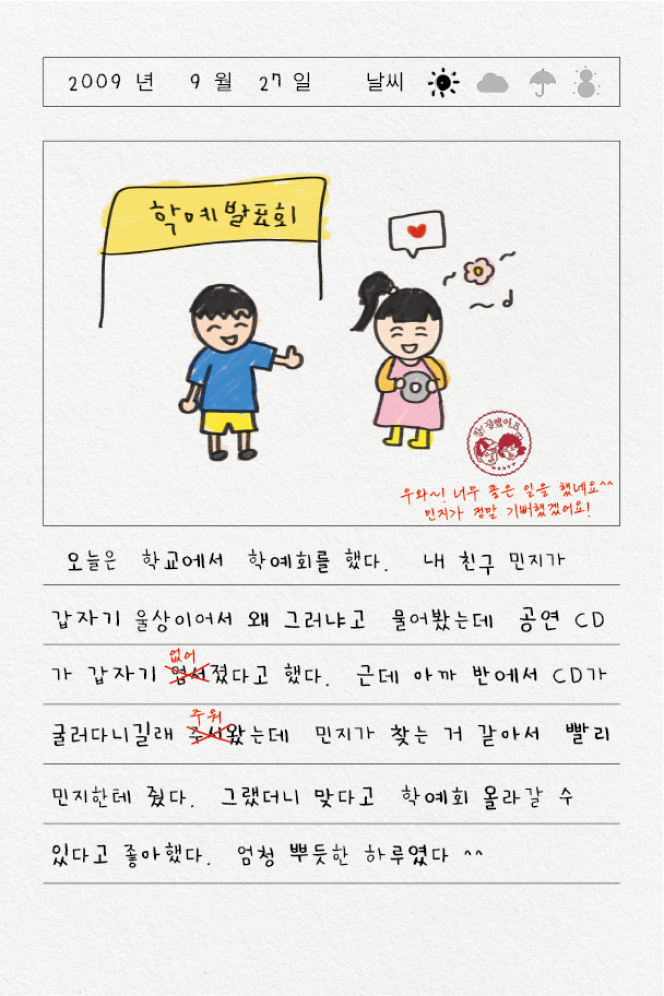 2009 년 9 월 27 일 날씨
학예발표회
참 잘했어요
우와~! 너무 좋은 일을 했네요^^
민지가 정말 기뻐했겠어요!
오늘은 학교에서 학예회를 했다. 내 친구 민지가
갑자기 울상이어서 왜 그러냐고 물어봤는데 공연 CD
없어
가 갑자기 업서졌다고 했다. 근데 아까 반에서 CD가
주워
굴러다니길래 주서왔는데 민지가 찾는 거 같아서 빨리
민지한테 줬다. 그랬더니 맞다고 학예회 올라갈 수
있다고 좋아했다. 엄청 뿌듯한 하루였다 ^^